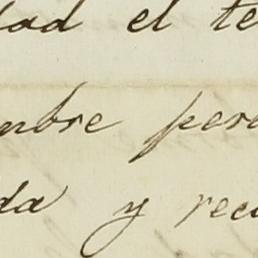 dad el te
mbre per
da y reco